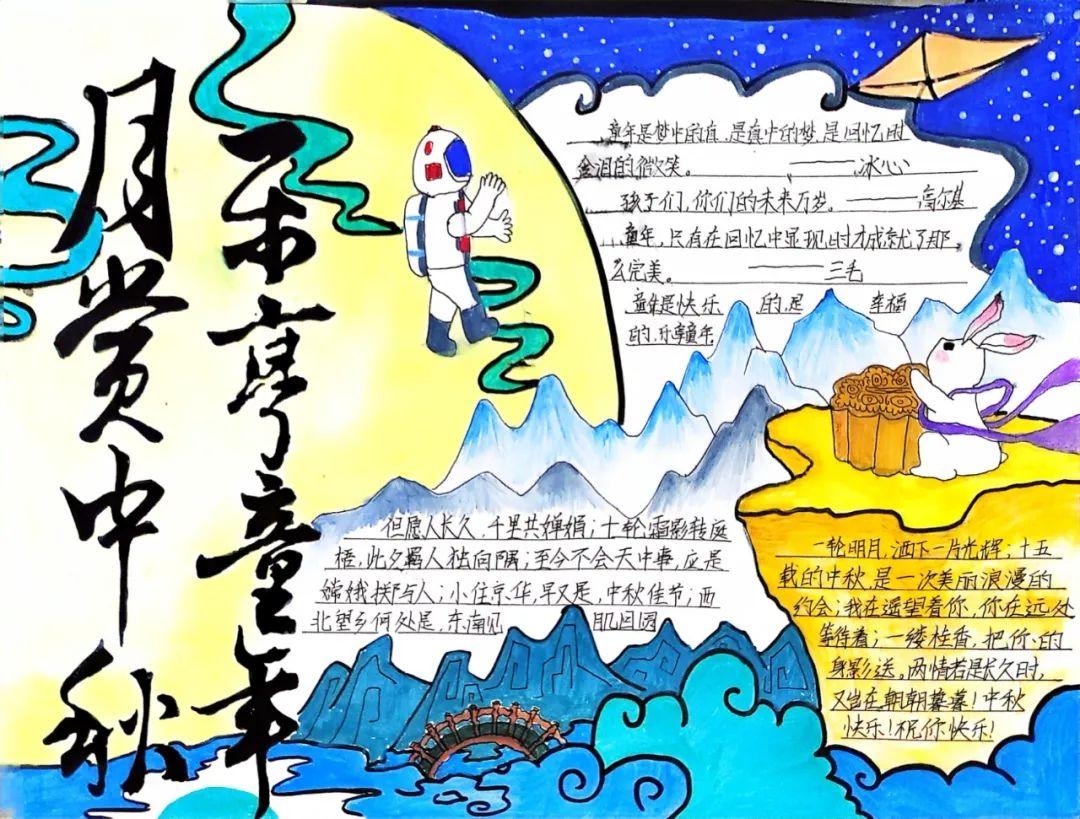 月赏中秋
乐享童年
童年是梦中的真、是真中的梦、是回忆时
含泪的微笑。——冰心
孩子们,你们的未来万岁。——高尔基
童年,只有在回忆中显现时才成就了那
么完美。——三毛
童年是快乐 的,是 幸福
的,乐享童年
但愿人长久,千里共婵娟;十轮霜影转庭
梧,此夕羁人独向隅;至今不会天中事,应是
嫦娥掷与人;小住京华,早又是,中秋佳节;西
北望乡何处是,东南见 月回圆
一轮明月,洒下一片光辉;十五
载的中秋,是一次美丽浪漫的
约会;我在遥望着你,你在远处
等待着;一缕桂香,把你的
身影送。两情若是长久时,
又岂在朝朝暮暮!中秋
快乐!祝你快乐!